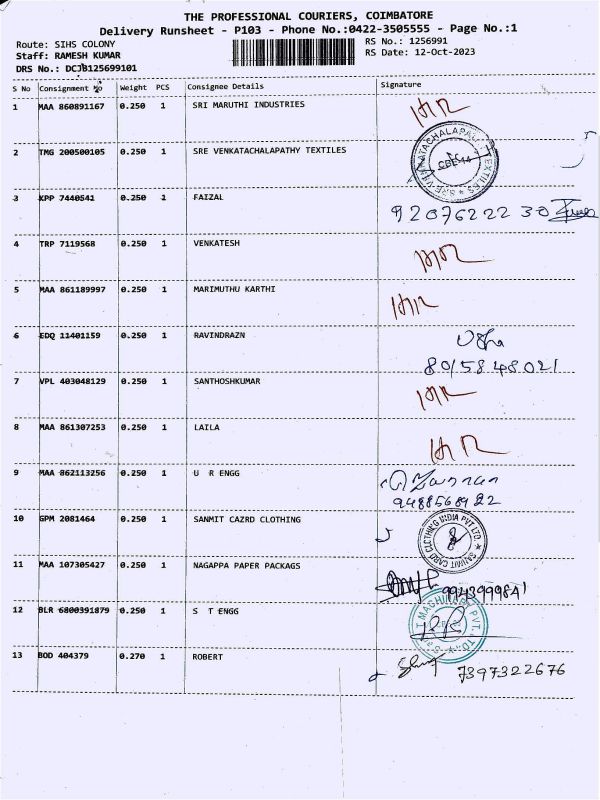 THE PROFESSIONAL COURIERS, COIMBATORE
Delivery Runsheet - P103 - Phone No.:0422-3505555 - Page No.:1
Route: SIHS COLONY RS No.: 1256991
Staff: RAMESH KUMAR RS Date: 12-Oct-2023
DRS No.: DCJB1256991​01
S No Consignment No Weight PCS Consignee Details Signature
1 MAA 860891167 0.250 1 SRI MARUTHI INDUSTRIES
2 TMG 200500105 0.250 1 SRE VENKATACHALAPATHY TEXTILES
3 KPP 7440541 0.250 1 FAIZAL
9207622230
4 TRP 7119568 0.250 1 VENKATESH
5 MAA 861189997 0.250 1 MARIMUTHU KARTHI
6 EDQ 11401159 0.250 1 RAVINDRAZN
உஷா
8015848021
7 VPL 403048129 0.250 1 SANTHOSHKUMAR
8 MAA 861307253 0.250 1 LAILA
9 MAA 862113256 0.250 1 U R ENGG
9488568922
10 GPM 2081464 0.250 1 SANMIT CAZRD CLOTHING
11 MAA 107305427 0.250 1 NAGAPPA PAPER PACKAGS
9943999841
12 BLR 6800391879 0.250 1 S T ENGG
13 BOD 404379 0.270 1 ROBERT
7397322676